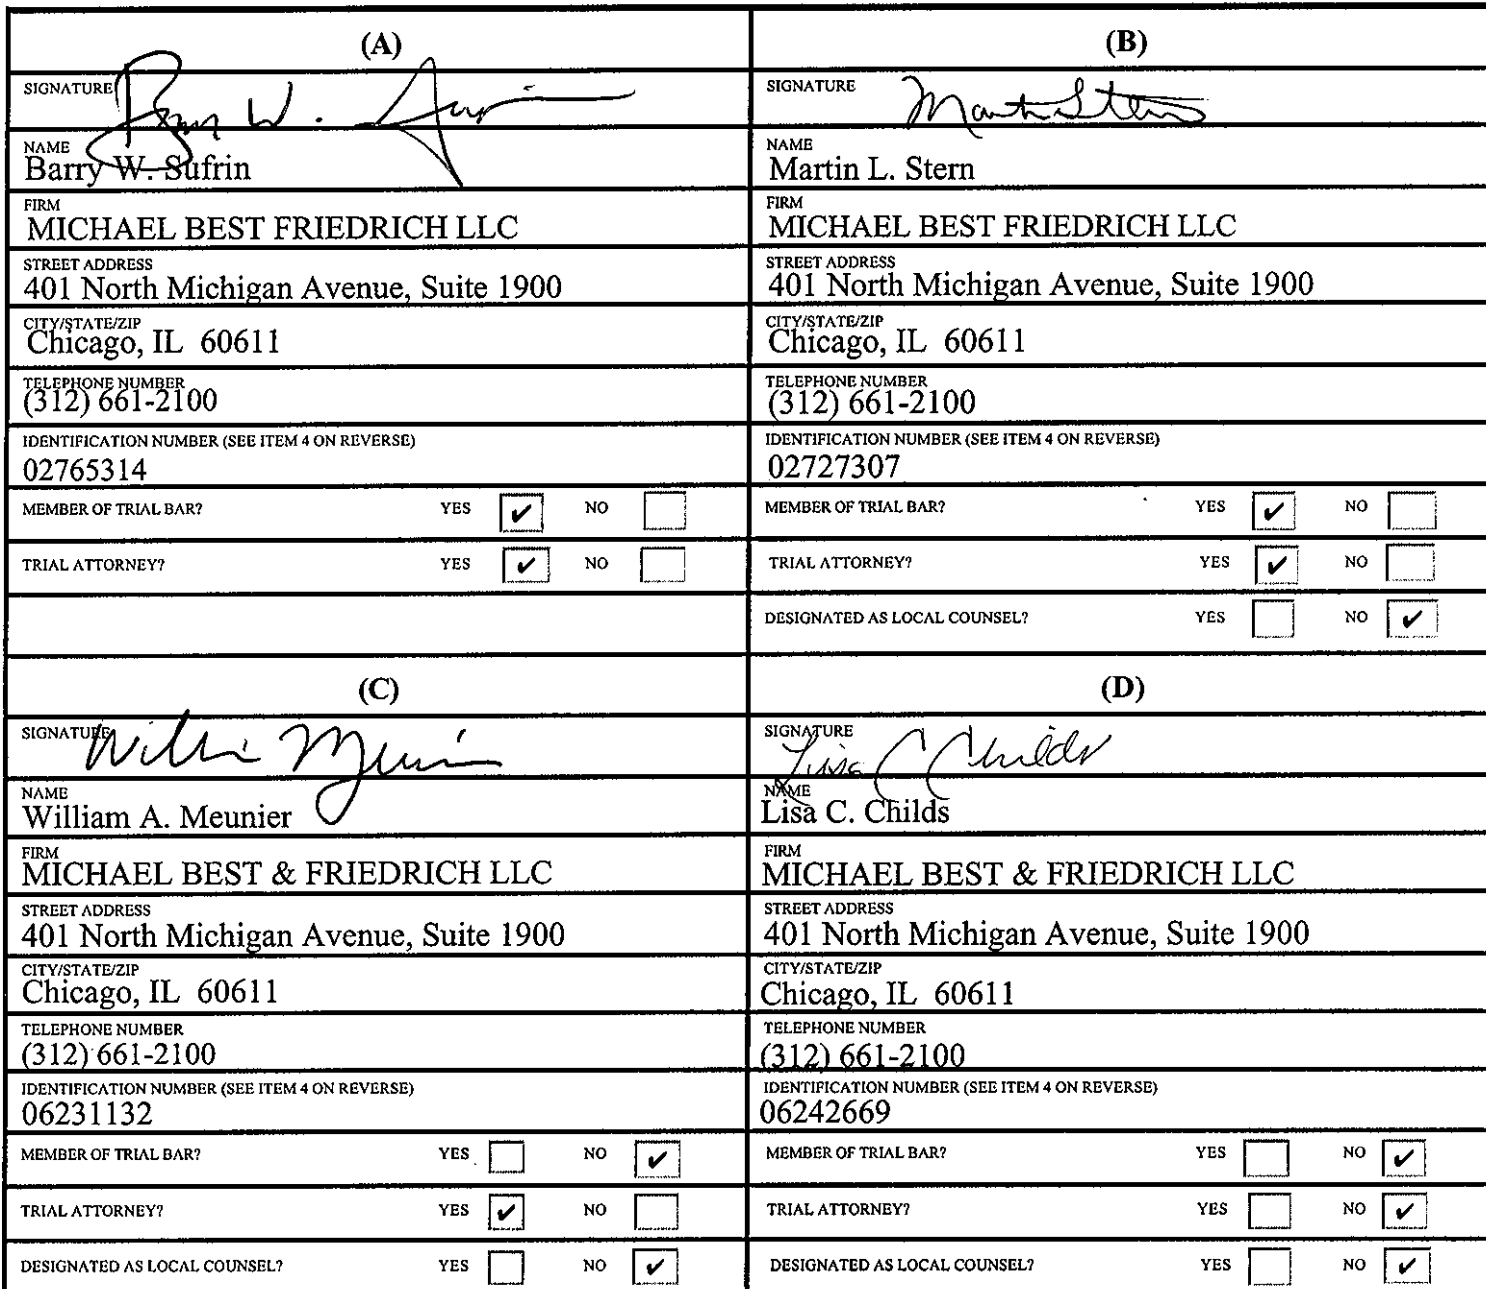 (A)
SIGNATURE Barry W. Sufrin
NAME
Barry W. Sufrin
FIRM
MICHAEL BEST FRIEDRICH LLC
STREET ADDRESS
401 North Michigan Avenue, Suite 1900
CITY/STATE/ZIP
Chicago, IL 60611
TELEPHONE NUMBER
(312) 661-2100
IDENTIFICATION NUMBER (SEE ITEM 4 ON REVERSE)
02765314
MEMBER OF TRIAL BAR? YES ✔ NO
TRIAL ATTORNEY? YES ✔ NO
(B)
SIGNATURE Martin Stern
NAME
Martin L. Stern
FIRM
MICHAEL BEST FRIEDRICH LLC
STREET ADDRESS
401 North Michigan Avenue, Suite 1900
CITY/STATE/ZIP
Chicago, IL 60611
TELEPHONE NUMBER
(312) 661-2100
IDENTIFICATION NUMBER (SEE ITEM 4 ON REVERSE)
02727307
MEMBER OF TRIAL BAR? YES ✔ NO
TRIAL ATTORNEY? YES ✔ NO
DESIGNATED AS LOCAL COUNSEL? YES NO ✔
(C)
SIGNATURE Willia Meunier
NAME
William A. Meunier
FIRM
MICHAEL BEST & FRIEDRICH LLC
STREET ADDRESS
401 North Michigan Avenue, Suite 1900
CITY/STATE/ZIP
Chicago, IL 60611
TELEPHONE NUMBER
(312) 661-2100
IDENTIFICATION NUMBER (SEE ITEM 4 ON REVERSE)
06231132
MEMBER OF TRIAL BAR? YES NO ✔
TRIAL ATTORNEY? YES ✔ NO
DESIGNATED AS LOCAL COUNSEL? YES NO ✔
(D)
SIGNATURE Lisa C Childs
NAME
Lisa C. Childs
FIRM
MICHAEL BEST & FRIEDRICH LLC
STREET ADDRESS
401 North Michigan Avenue, Suite 1900
CITY/STATE/ZIP
Chicago, IL 60611
TELEPHONE NUMBER
(312) 661-2100
IDENTIFICATION NUMBER (SEE ITEM 4 ON REVERSE)
06242669
MEMBER OF TRIAL BAR? YES NO ✔
TRIAL ATTORNEY? YES NO ✔
DESIGNATED AS LOCAL COUNSEL? YES NO ✔